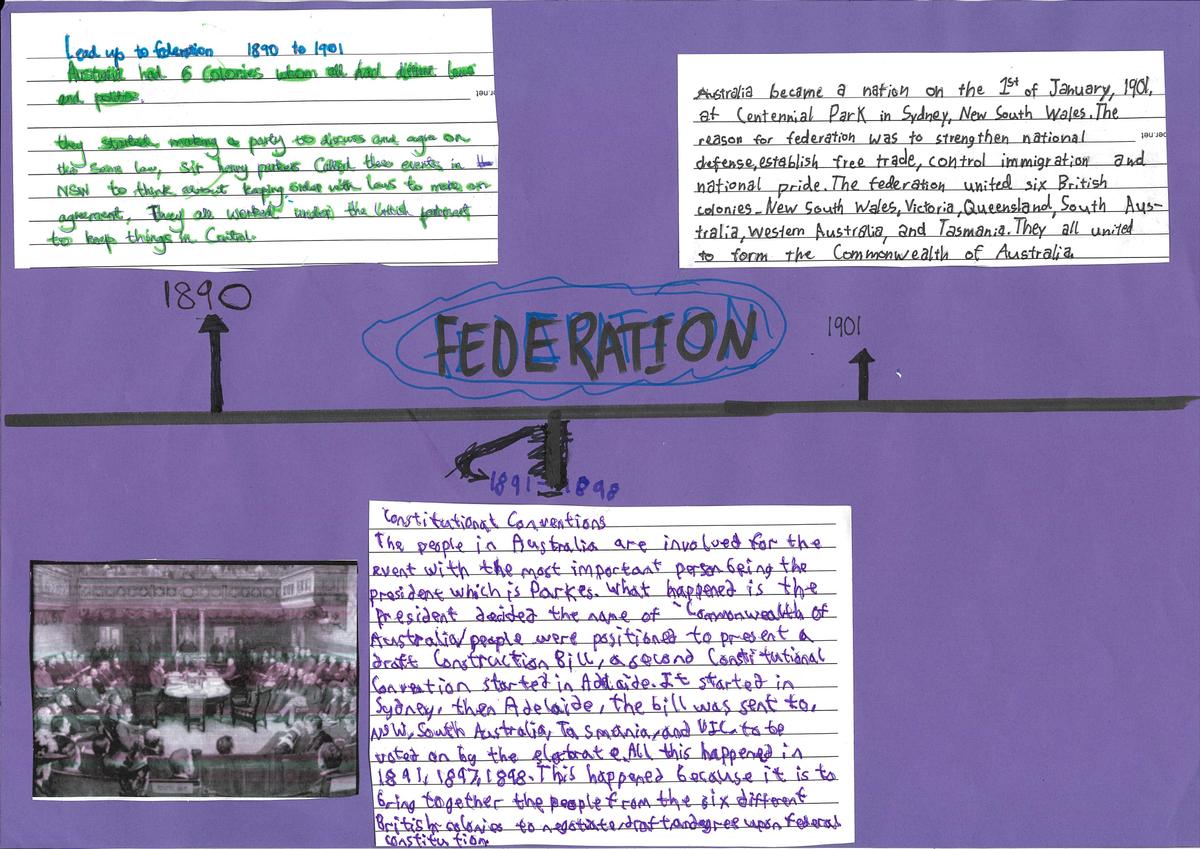 Lead up to federation 1890 to 1901
Australia had 6 Colonies whom all had laws
and politics.
they started making a party to discuss and agre on
the same law, sir henry parkes Called these events in the
NSW to think about keping order with laws to make an
agreement, They all worked under the british
to keep things in Control.
Australia became a nation on the 1st of January, 1901,
at Centennial Park in Sydney, New South Wales. The
reason for federation was to strengthen national
defense, establish free trade, control immigration and
national pride. The federation united six British
colonies - New South Wales, Victoria, Queensland, South Aus-
tralia, Western Australia, and Tasmania. They all united
to form the Commonwealth of Australia.
1890
FEDERATION
1901
1891-1898
Constitutional Conventions
The people in Australia are involved for the
event with the most important person being the
president which is Parkes. What happened is the
President decided the name of "Commonwealth of
Australia, people were positioned to present a
draft Construction Bill, a second Constitutional
Convention started in Adelaide. It started in
Sydney, then Adelaide, the bill was sent to,
NSW, South Australia, Tasmania, and VIC to be
voted on by the All this happened in
1891, 1897, 1898. This happened because it is to
bring together the people from the six different
British colonies to negotiate draft and agree upon federal
constitution.